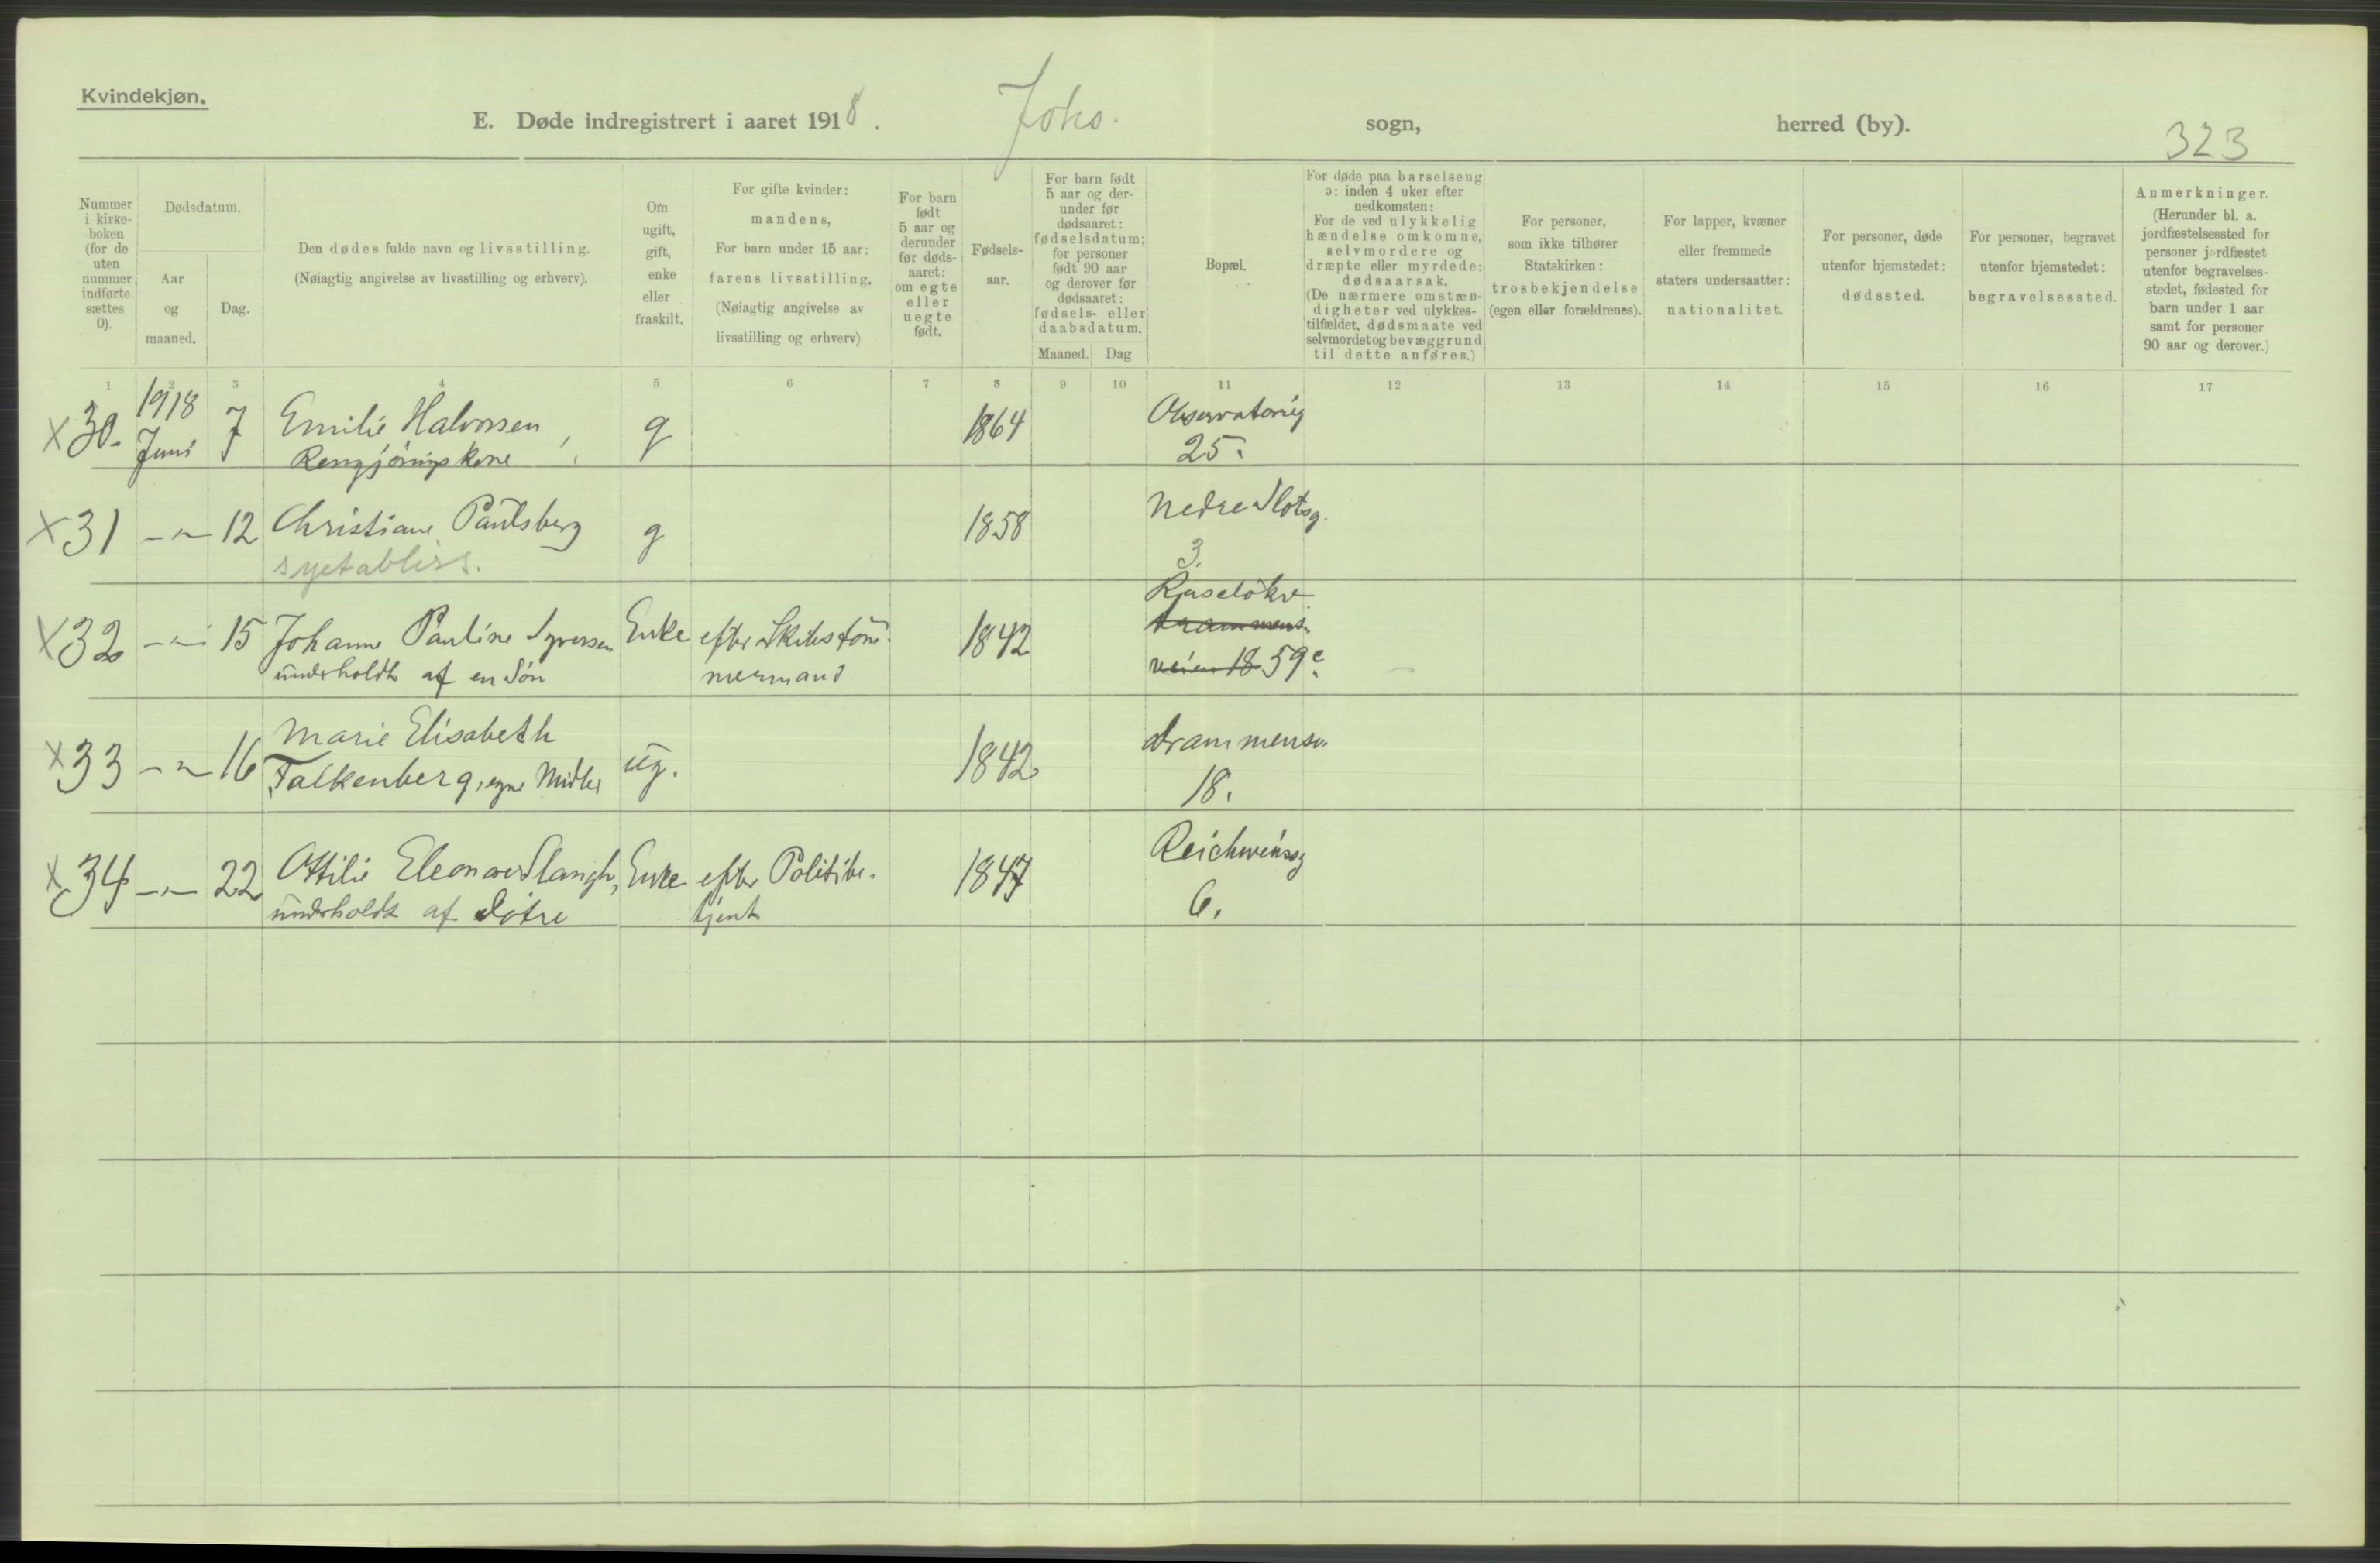 Kvindekjøn.
E. Døde indregistrert i aaret 1918. Johs. sogn, herred (by).
323
Nummer
i kirke-
boken
(for de
uten
nummer
indførte
sættes
0).
Dødsdatum.
Aar
og
maaned.
Dag.
Den dødes fulde navn og livsstilling.
(Nøiagtig angivelse av livsstilling og erhverv).
Om
ugift,
gift,
enke
eller
fraskilt.
For gifte kvinder:
mandens,
For barn under 15 aar:
farens livsstilling.
(Nøiagtig angivelse av
livsstilling og erhverv)
For barn
født
5 aar og
derunder
før døds-
aaret:
om egte
eller
uegte
født.
Fødsels-
aar.
For barn født
5 aar og der-
under før
dødsaaret:
fødselsdatum;
for personer
født 90 aar
og derover før
dødsaaret:
fødsels- eller
daabsdatum.
Maaned. Dag
Bopæl.
For døde paa barselseng
ɔ: inden 4 uker efter
nedkomsten:
For de ved ulykkelig
hændelse omkomne,
selvmordere og
dræpte eller myrdede:
dødsaarsak.
(De nærmere omstæn-
digheter ved ulykkes-
tilfældet, dødsmaate ved
selvmordet og bevæggrund
til dette anføres.)
For personer,
som ikke tilhører
Statskirken:
trosbekjendelse
(egen eller forældrenes).
For lapper, kvæner
eller fremmede
staters undersaatter:
nationalitet.
For personer, døde
utenfor hjemstedet:
dødssted.
For personer, begravet
utenfor hjemstedet:
begravelsessted.
Anmerkninger.
(Herunder bl. a.
jordfæstelsessted for
personer jordfæstet
utenfor begravelses-
stedet, fødested for
barn under 1 aar
samt for personer
90 aar og derover.)
1 2 3 4 5 6 7 8 9 10 11 12 13 14 15 16 17
x 30. 1918 Juni 7 Emilie Halvorsen, g 1864 Observatorieg
Rengjøringskone 25.
x 31 -"- 12 Christiane Paulsberg g 1858 Nedre Slotsg.
syetabliss. 3.
x 32 -"- 15 Johanne Pauline Syversen Enke efter Skibstøm- 1842 Ruseløkv.
Drammens-
underholdt af en Søn mermand veien 18 59c.
x 33 -"- 16 Marie Elisabeth ug. 1842 Drammensv.
Falkenberg, egne Midler 18.
x 34 -"- 22 Ottilie Eleonore Slangh, Enke efter Politibe- 1847 Reichweinsg
underholdt af Døtre tjent 6.